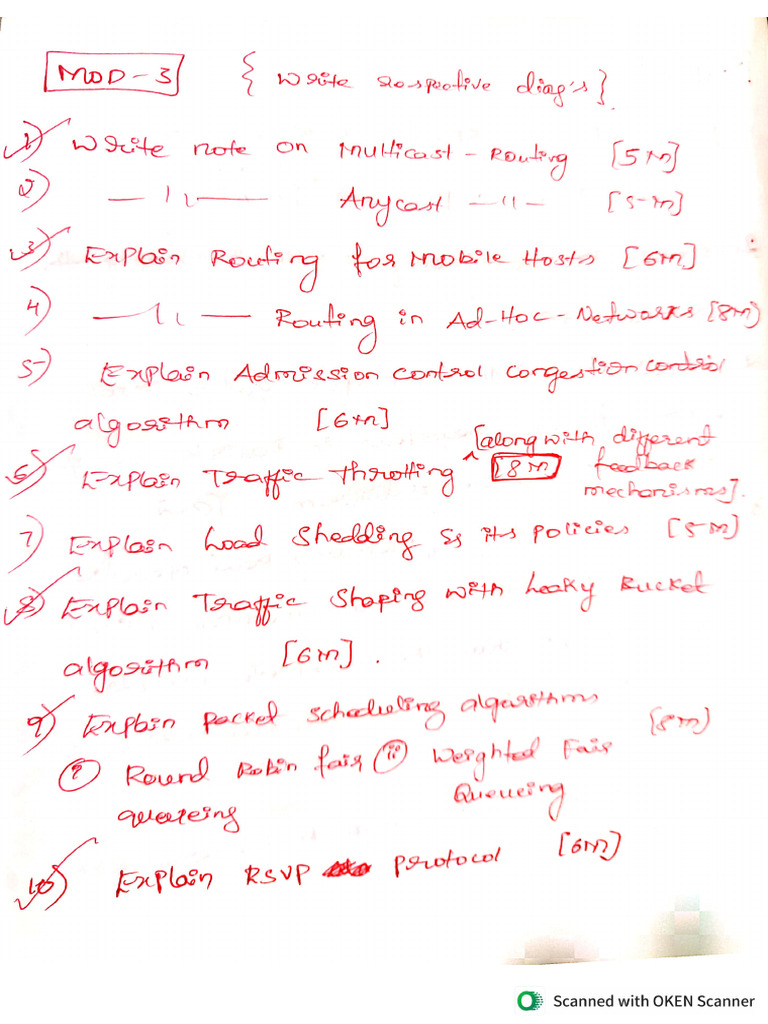 MOD-3 { Write respective diag's}
1) Write note on Multicast-Routing [5M]
2) — 〃 — Anycast — 〃 — [5-M]
3) Explain Routing for Mobile Hosts [6M]
4) — 〃 — Routing in Ad-Hoc-Networks [8M]
5) Explain Admission control congestion control
algorithm [6M]
[along with different
6) Explain Traffic Throttling ^ [8M] feedback
mechanisms].
7) Explain Load Shedding & its policies [5M]
8) Explain Traffic Shaping with Leaky Bucket
algorithm [6M].
9) Explain packet scheduling algorithms [8M]
(i) Round Robin fair (ii) Weighted Fair
queueing Queueing
10) Explain RSVP protocol [6M]
Scanned with OKEN Scanner